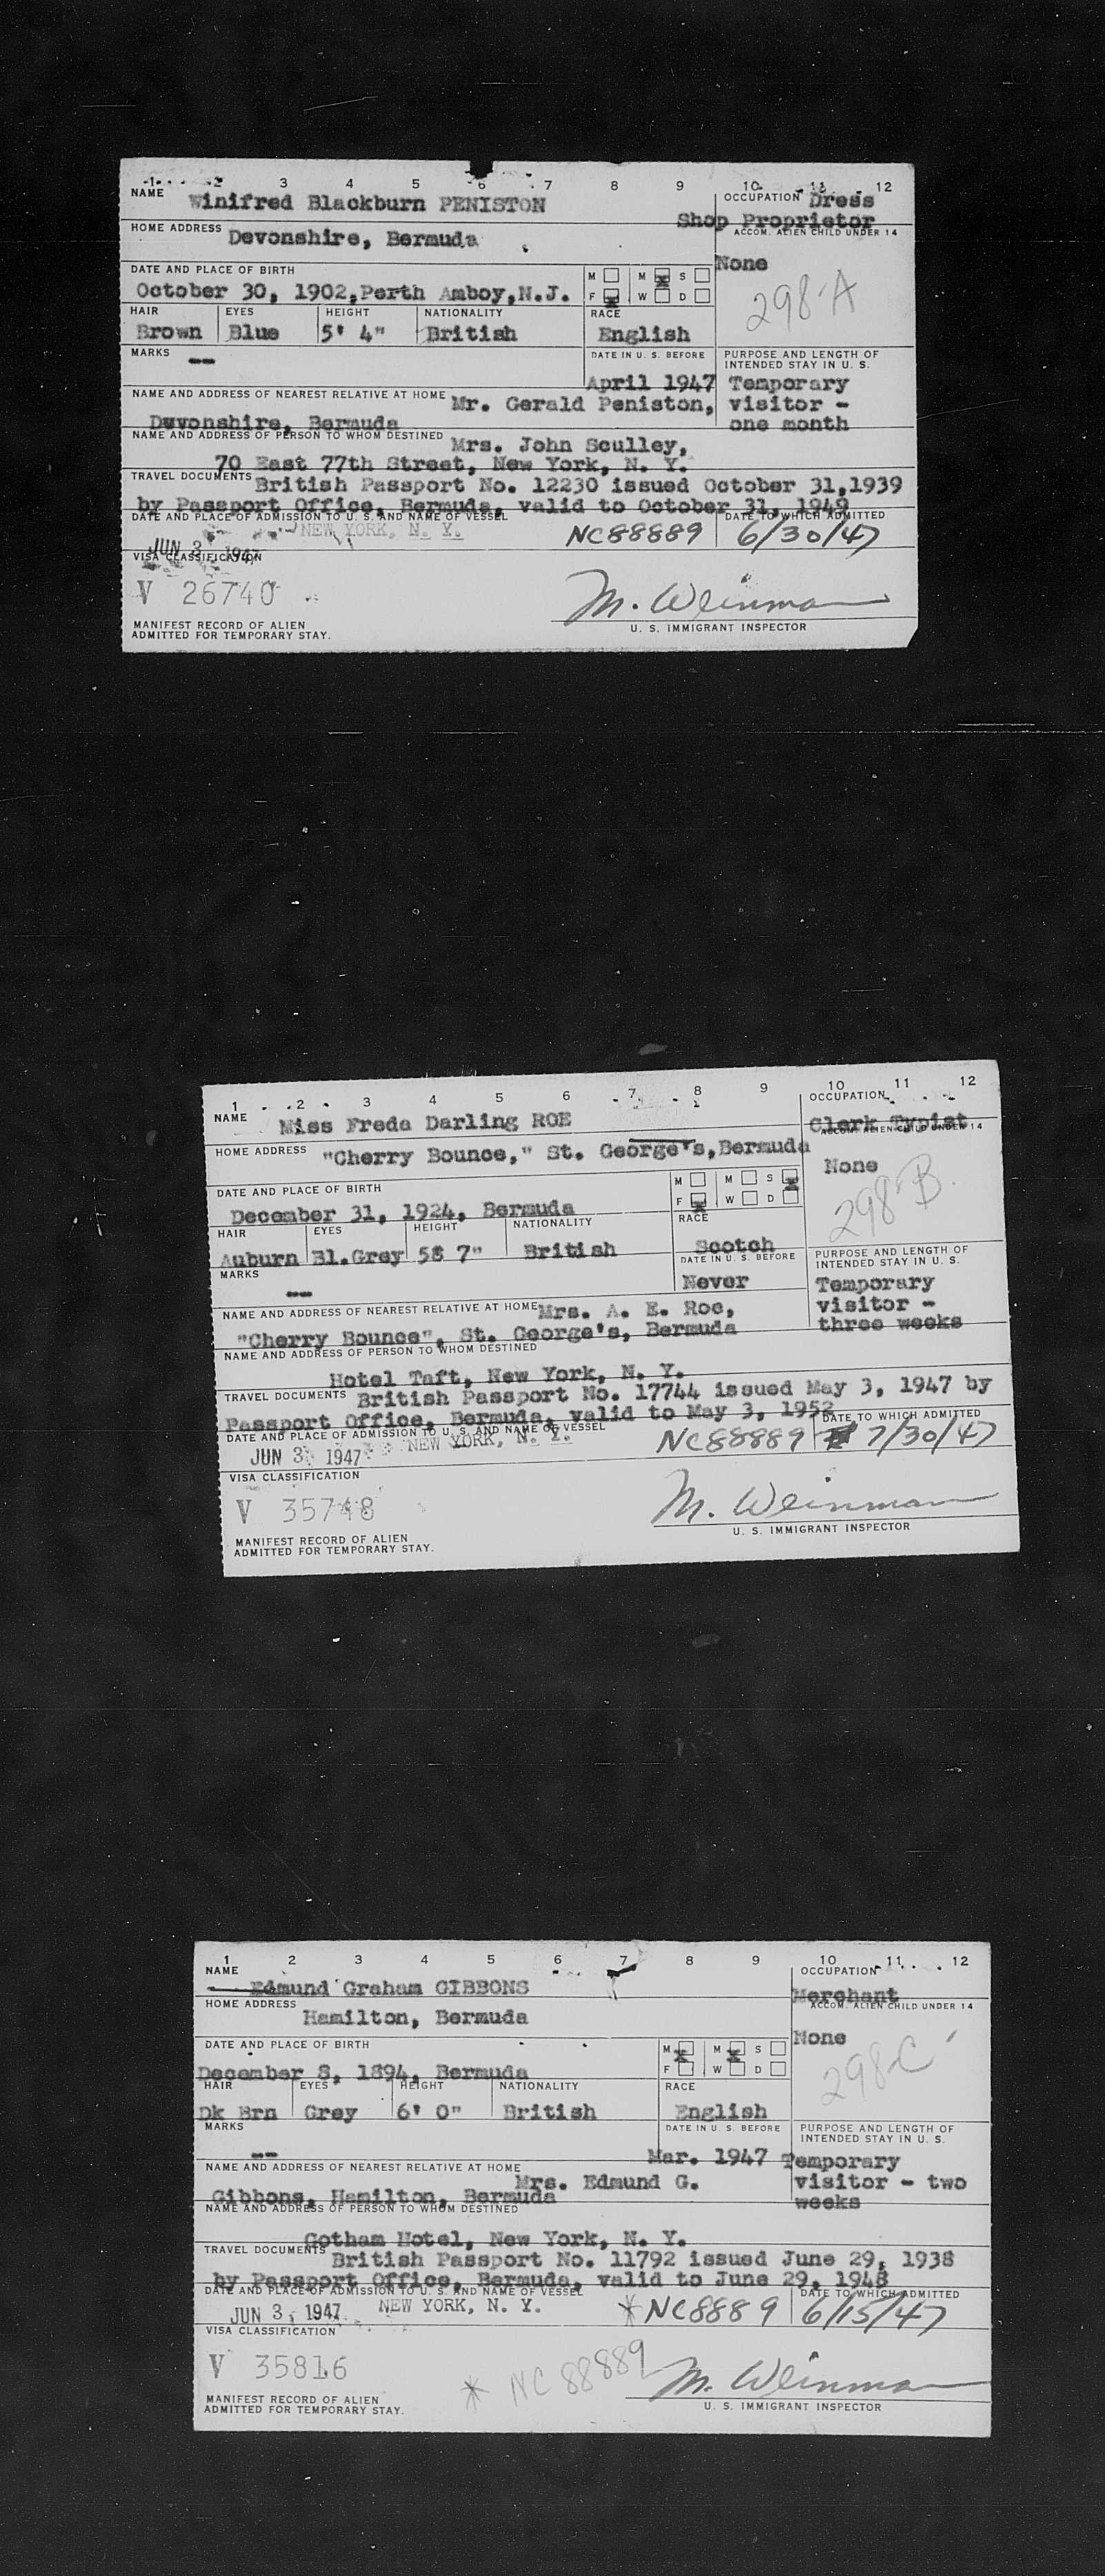 1 2 3 4 5 6 7 8 9 10 11 12
NAME Winifred Blackburn PENISTON
OCCUPATION Dress
Shop Proprietor
HOME ADDRESS Devonshire, Bermuda
ACCOM. ALIEN CHILD UNDER 14
None
298-A
DATE AND PLACE OF BIRTH
October 30, 1902, Perth Amboy, N.J.
M M x S
F x W D
HAIR EYES HEIGHT NATIONALITY RACE
Brown Blue 5' 4" British English
MARKS --
DATE IN U. S. BEFORE
April 1947
PURPOSE AND LENGTH OF
INTENDED STAY IN U. S.
Temporary
visitor -
one month
NAME AND ADDRESS OF NEAREST RELATIVE AT HOME Mr. Gerald Peniston,
Devonshire, Bermuda
NAME AND ADDRESS OF PERSON TO WHOM DESTINED Mrs. John Sculley,
70 East 77th Street, New York, N. Y.
TRAVEL DOCUMENTS British Passport No. 12230 issued October 31,1939
by Passport Office, Bermuda, valid to October 31, 1949
DATE AND PLACE OF ADMISSION TO U. S. AND NAME OF VESSEL
DATE TO WHICH ADMITTED
JUN 3 1947 NEW YORK, N. Y. NC88889 6/30/47
VISA CLASSIFICATION
V 26740
M. Weinman
MANIFEST RECORD OF ALIEN
ADMITTED FOR TEMPORARY STAY.
U. S. IMMIGRANT INSPECTOR
1 2 3 4 5 6 7 8 9 10 11 12
NAME Miss Freda Darling ROE
OCCUPATION
Clerk Typist
HOME ADDRESS "Cherry Bounce," St. George's, Bermuda
ACCOM. ALIEN CHILD UNDER 14
None
298-B.
DATE AND PLACE OF BIRTH
December 31, 1924, Bermuda
M M S x
F x W D
HAIR EYES HEIGHT NATIONALITY RACE
Auburn Bl.Grey 58 7" British Scotch
MARKS --
DATE IN U. S. BEFORE
Never
PURPOSE AND LENGTH OF
INTENDED STAY IN U. S.
Temporary
visitor -
three weeks
NAME AND ADDRESS OF NEAREST RELATIVE AT HOME Mrs. A. E. Roe,
"Cherry Bounce", St. George's, Bermuda
NAME AND ADDRESS OF PERSON TO WHOM DESTINED
Hotel Taft, New York, N. Y.
TRAVEL DOCUMENTS British Passport No. 17744 issued May 3, 1947 by
Passport Office, Bermuda, valid to May 3, 1952
DATE AND PLACE OF ADMISSION TO U. S. AND NAME OF VESSEL
DATE TO WHICH ADMITTED
JUN 3 1947 NEW YORK, N. Y. NC88889 7/30/47
VISA CLASSIFICATION
V 35748
M. Weinman
MANIFEST RECORD OF ALIEN
ADMITTED FOR TEMPORARY STAY.
U. S. IMMIGRANT INSPECTOR
1 2 3 4 5 6 7 8 9 10 11 12
NAME
Edmund Graham GIBBONS
OCCUPATION
Merchant
HOME ADDRESS
Hamilton, Bermuda
ACCOM. ALIEN CHILD UNDER 14
None
298-C
DATE AND PLACE OF BIRTH
December 8, 1894, Bermuda
M x M x S
F W D
HAIR EYES HEIGHT NATIONALITY RACE
Dk Brn Grey 6' 0" British English
MARKS
--
DATE IN U. S. BEFORE
Mar. 1947
PURPOSE AND LENGTH OF
INTENDED STAY IN U. S.
Temporary
visitor - two
weeks
NAME AND ADDRESS OF NEAREST RELATIVE AT HOME
Mrs. Edmund G.
Gibbons, Hamilton, Bermuda
NAME AND ADDRESS OF PERSON TO WHOM DESTINED
Gotham Hotel, New York, N. Y.
TRAVEL DOCUMENTS British Passport No. 11792 issued June 29, 1938
by Passport Office, Bermuda, valid to June 29, 1948
DATE AND PLACE OF ADMISSION TO U. S. AND NAME OF VESSEL
DATE TO WHICH ADMITTED
JUN 3, 1947 NEW YORK, N. Y. *NC8889 6/15/47
VISA CLASSIFICATION
V 35816
* NC88889
M. Weinman
MANIFEST RECORD OF ALIEN
ADMITTED FOR TEMPORARY STAY.
U. S. IMMIGRANT INSPECTOR